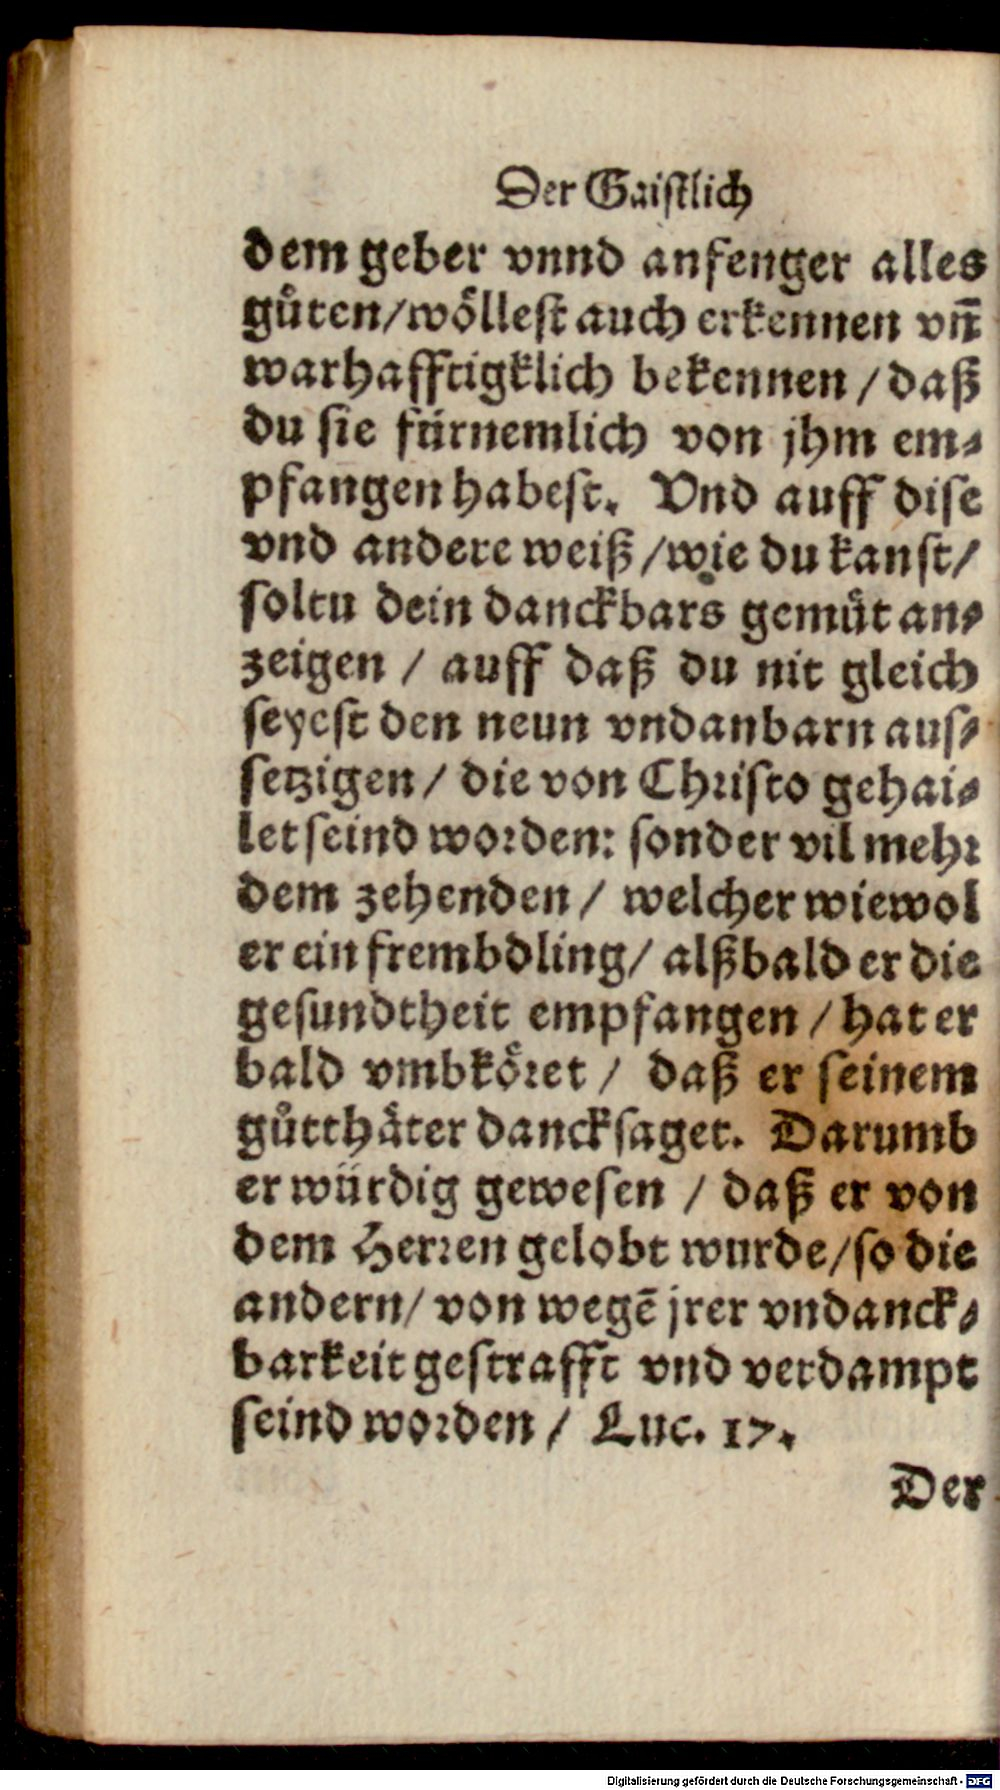 Der Gaistlich
dem geber vnnd anfenger alles
guͦten/woͤllest auch erkennen vn̄
warhafftigklich bekennen / daß
du sie fürnemlich von jhm em⸗
pfangen habest. Vnd auff dise
vnd andere weiß /wie du kanst/
soltu dein danckbars gemuͤt an⸗
zeigen / auff daß du nit gleich
seyest den neun vndanbarn aus⸗
setzigen / die von Christo gehai⸗
let seind worden: sonder vil mehr
dem zehenden / welcher wiewol
er ein frembdling/ alßbald er die
gesundtheit empfangen / hat er
bald vmbkoͤret / daß er seinem
guͦtthaͤter dancksaget. Darumb
er würdig gewesen / daß er von
dem Herren gelobt wurde/so die
andern/ von wegē jrer vndanck⸗
barkeit gestrafft vnd verdampt
seind worden / Luc. 17.
Der
Digitalisierung gefördert durch die Deutsche Forschungsgemeinschaft - DFG